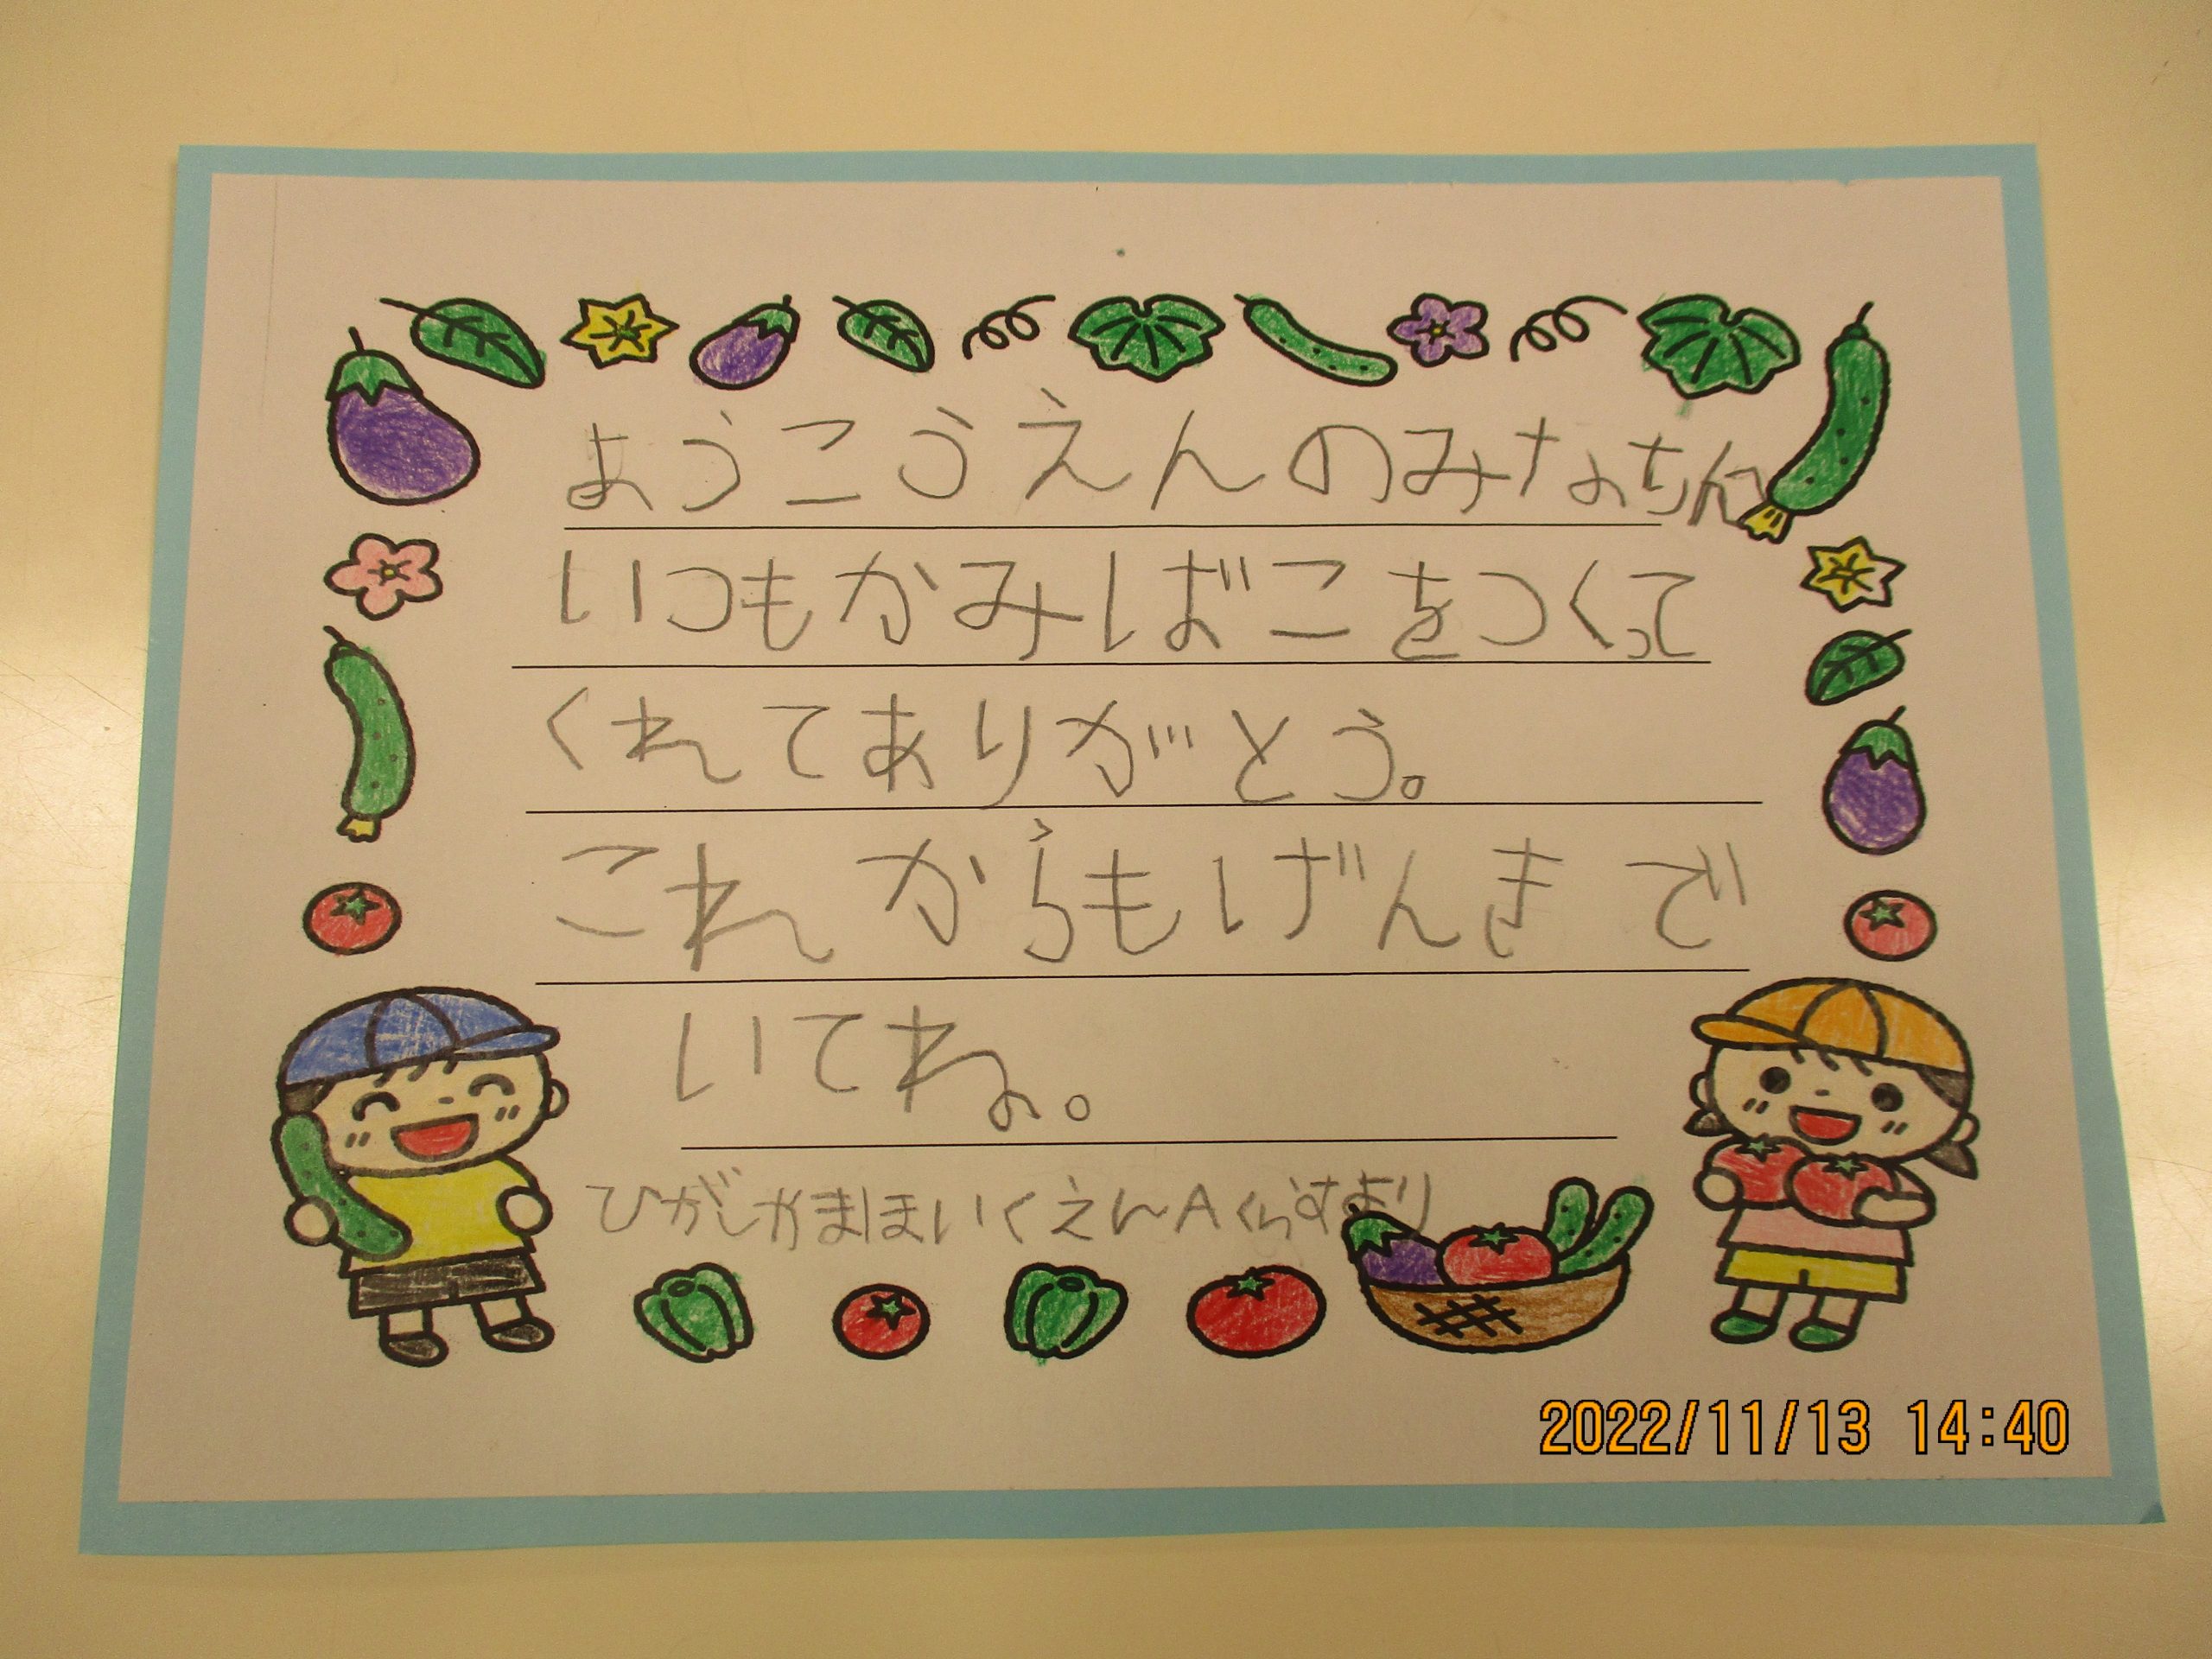 ようこうえんのみなさんへ
いつもかみしばこをつくって
くれてありがとう。
これからもげんきで
いてね。
ひがしかまほいくえんAくらすより
2022/11/13 14:40